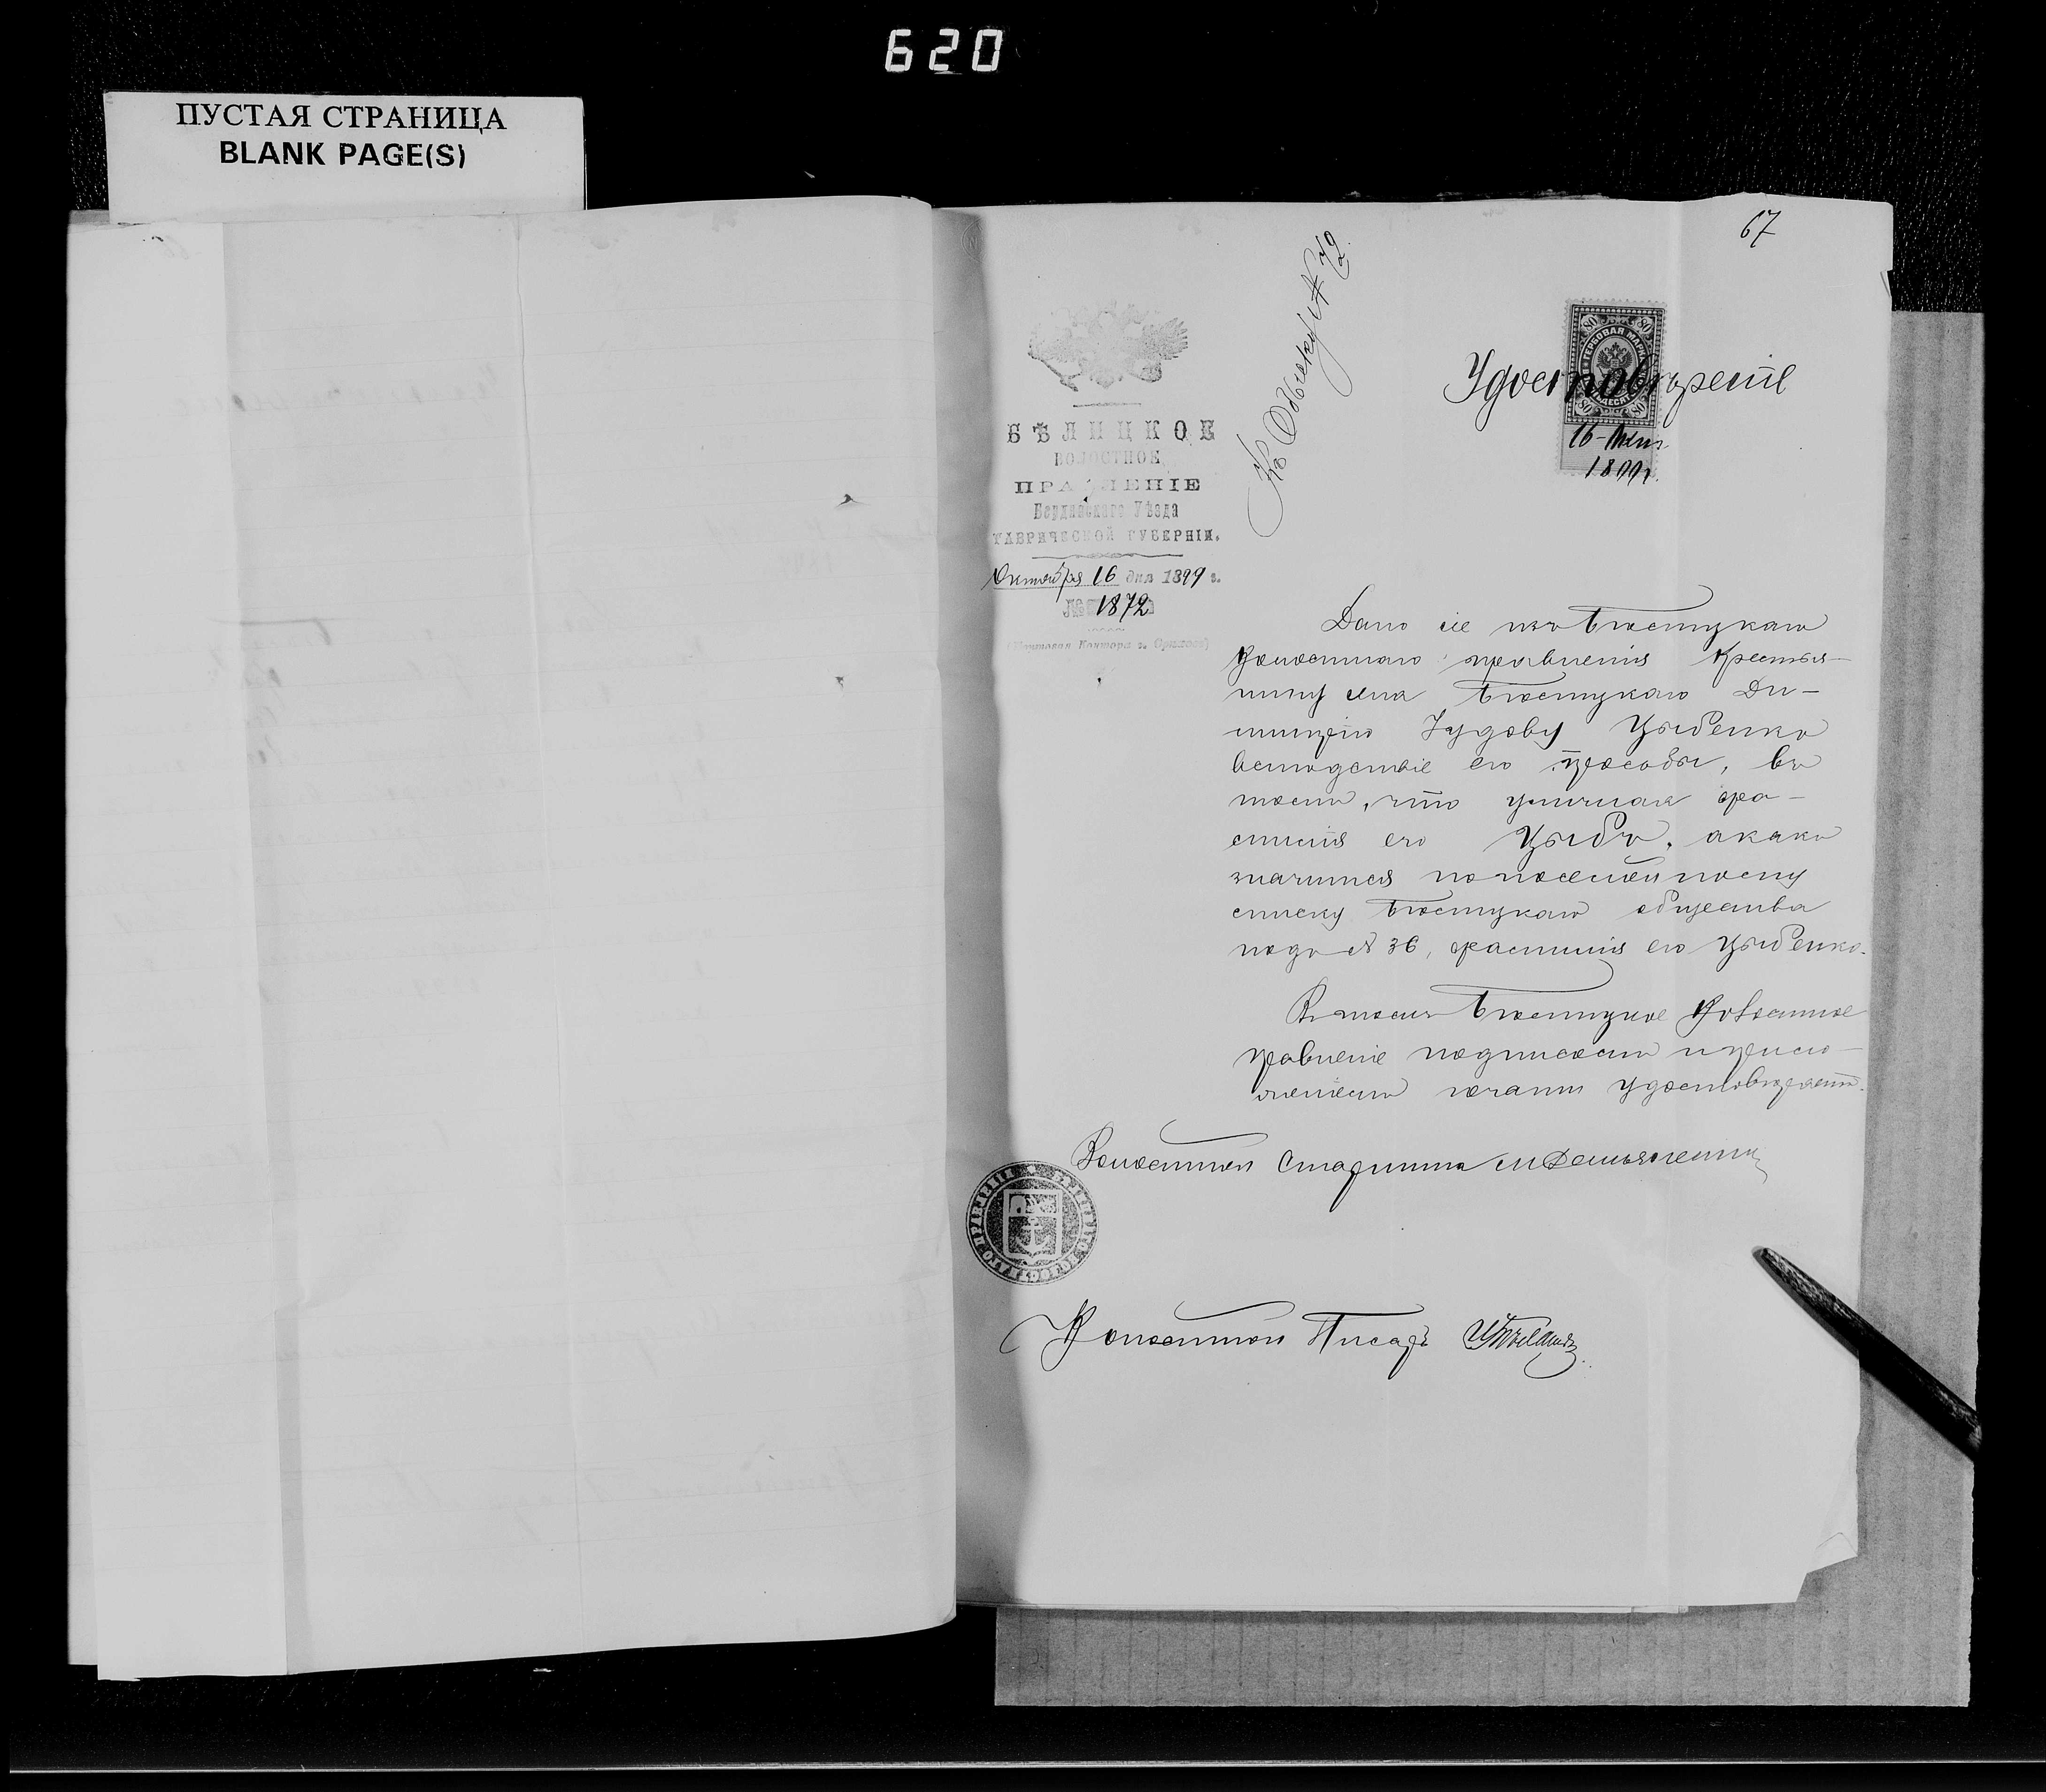 620
ПУСТАЯ СТРАНИЦА
BLANK PAGE(S)
67
Къ Обыску № 72
БѢЛИЦКОЕ
ВОЛОСТНОЕ
ПРАВЛЕНІЕ
Бердянскаго Уѣзда
ТАВРИЧЕСКОЙ ГУБЕРНІИ.
Октября 16 дня 1899 г.
№ 1872
(Почтовая Контора г. Орѣховъ)
ГЕРБОВАЯ МАРКА
80 80
80 80
Удостовѣреніе
16
1899 г.
Дано сіе изъ Бѣлицкаго
Волостнаго правленія крестья-
нину села Бѣлицкаго Ди-
митрію Цыбенко
вслѣдствіе его просьбы, въ
томъ, что уличная фа-
милія его Цыба, а какъ
значится по посемейному
списку Бѣлицкаго общества
подъ № 36, фамилія его Цыбенко.
Въ томъ Бѣлицкое Волостное
правленіе подписомъ и прило-
женіемъ печати удостовѣряетъ.
Волостной Старшина
Волостной Писарь